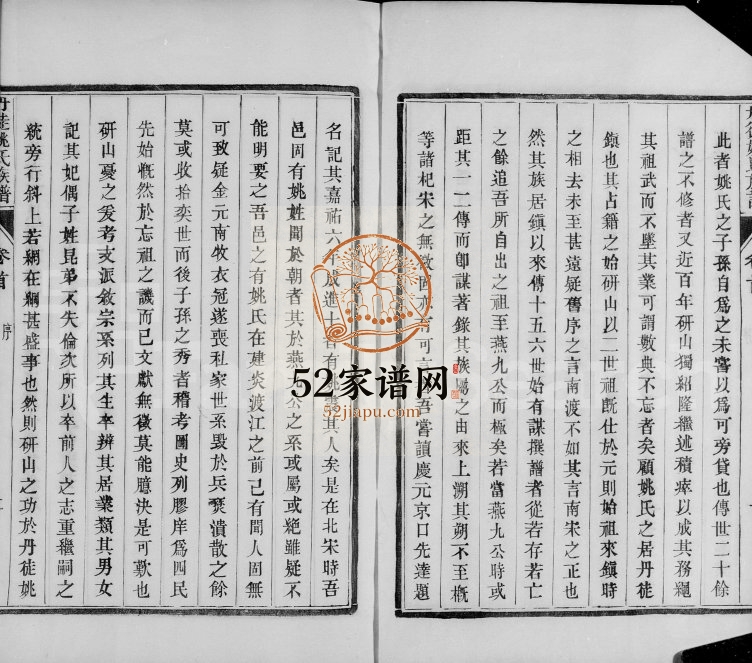 此者姚氏之子孫自爲之未嘗以爲可旁貸也傳世二十餘
譜之不修者又近百年研山獨紹隆繼述積瘁以成其務繩
其祖武而不墜其業可謂數典不忘者矣顧姚氏之居丹徒
鎮也其占籍之始研山以二世祖旣仕於元則始祖來鎮時
之相去未至甚遠疑舊序之言南渡不如其言南宋之正也
然其族居鎮以來傳十五六世始有謀撰譜者從若存若亡
之餘追吾所自出之祖至燕九公而極矣若當燕九公時或
距其一二傳而卽謀著錄其族屬之由來上溯其朔不至槪
等諸杞宋之無徵固亦 可 吾嘗讀慶元京口先達題
名記其嘉祐六年成進士者有姚 其人矣是在北宋時吾
邑固有姚姓聞於朝者其於燕九公之系或屬或絕雖疑不
能明要之吾邑之有姚氏在建炎渡江之前已有聞人固無
可致疑金元南牧衣冠遂喪私家世系毀於兵燹潰散之餘
莫或收拾奕世而後子孫之秀者稽考圖史列膠庠爲四民
先始慨然於忘祖之譏而已文獻無徵莫能臆決是可歎也
研山憂之爰考支派敘宗系列其生卒辨其居業類其男女
記其妃偶子姓昆弟不失倫次所以卒前人之志重繼嗣之
統旁行斜上若網在綱甚盛事也然則研山之功於丹徒姚
丹徒姚氏族譜
卷首
序
52家谱网
52jiapu.com